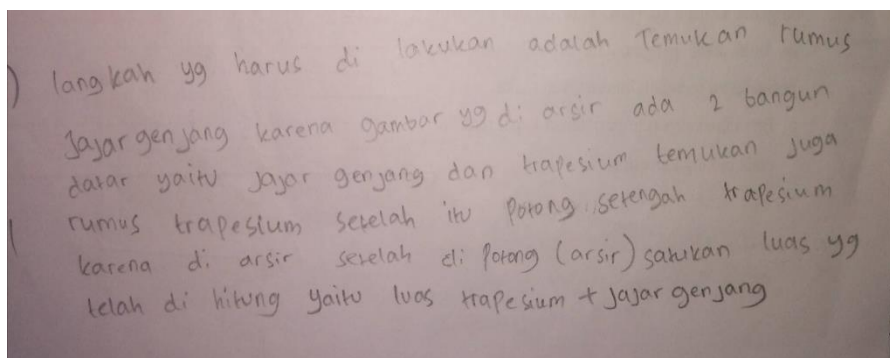 ) langkah yg harus di lakukan adalah Temukan rumus
Jajar genjang karena gambar yg di arsir ada 2 bangun
datar yaitu jajar genjang dan trapesium temukan juga
rumus trapesium setelah itu Potong setengah trapesium
karena di arsir setelah di Potong (arsir) satukan luas yg
telah di hitung yaitu luas trapesium + jajar genjang